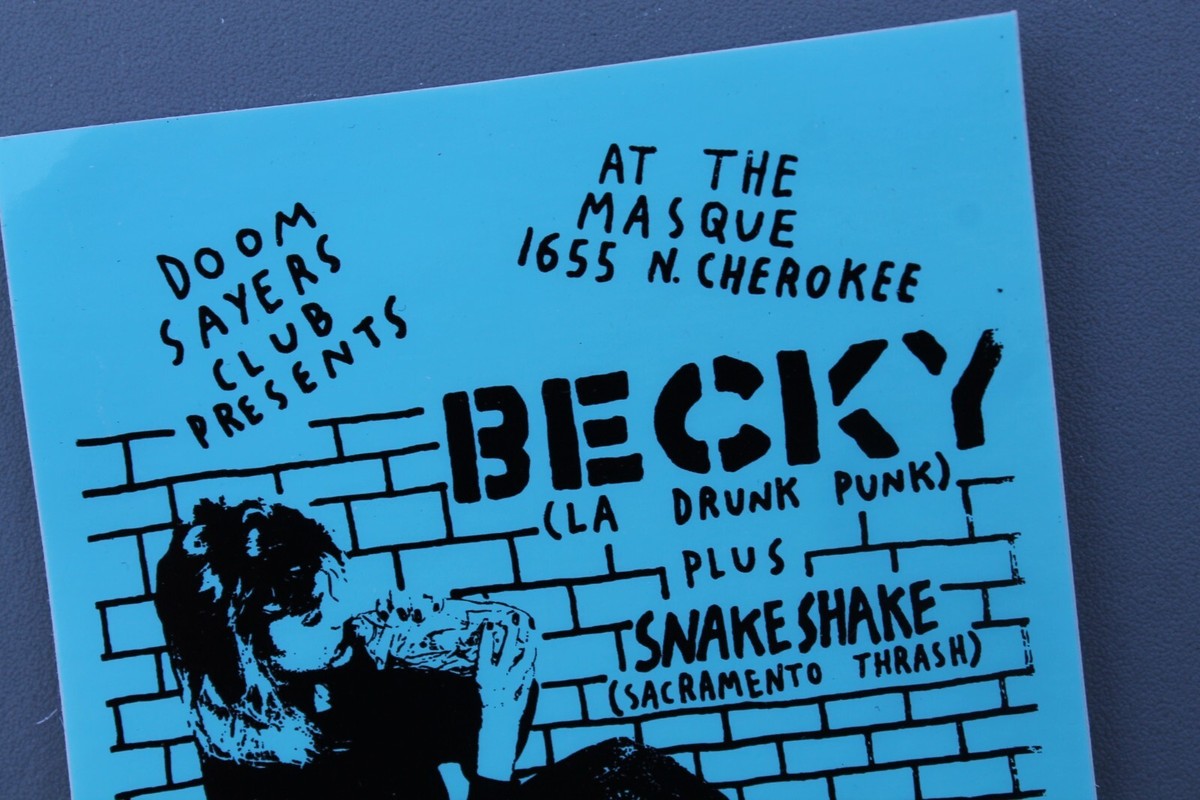 DOOM
SAYERS
CLUB
PRESENTS
AT THE
MASQUE
1655 N. CHEROKEE
BECKY
(LA DRUNK PUNK)
PLUS
SNAKESHAKE
(SACRAMENTO THRASH)